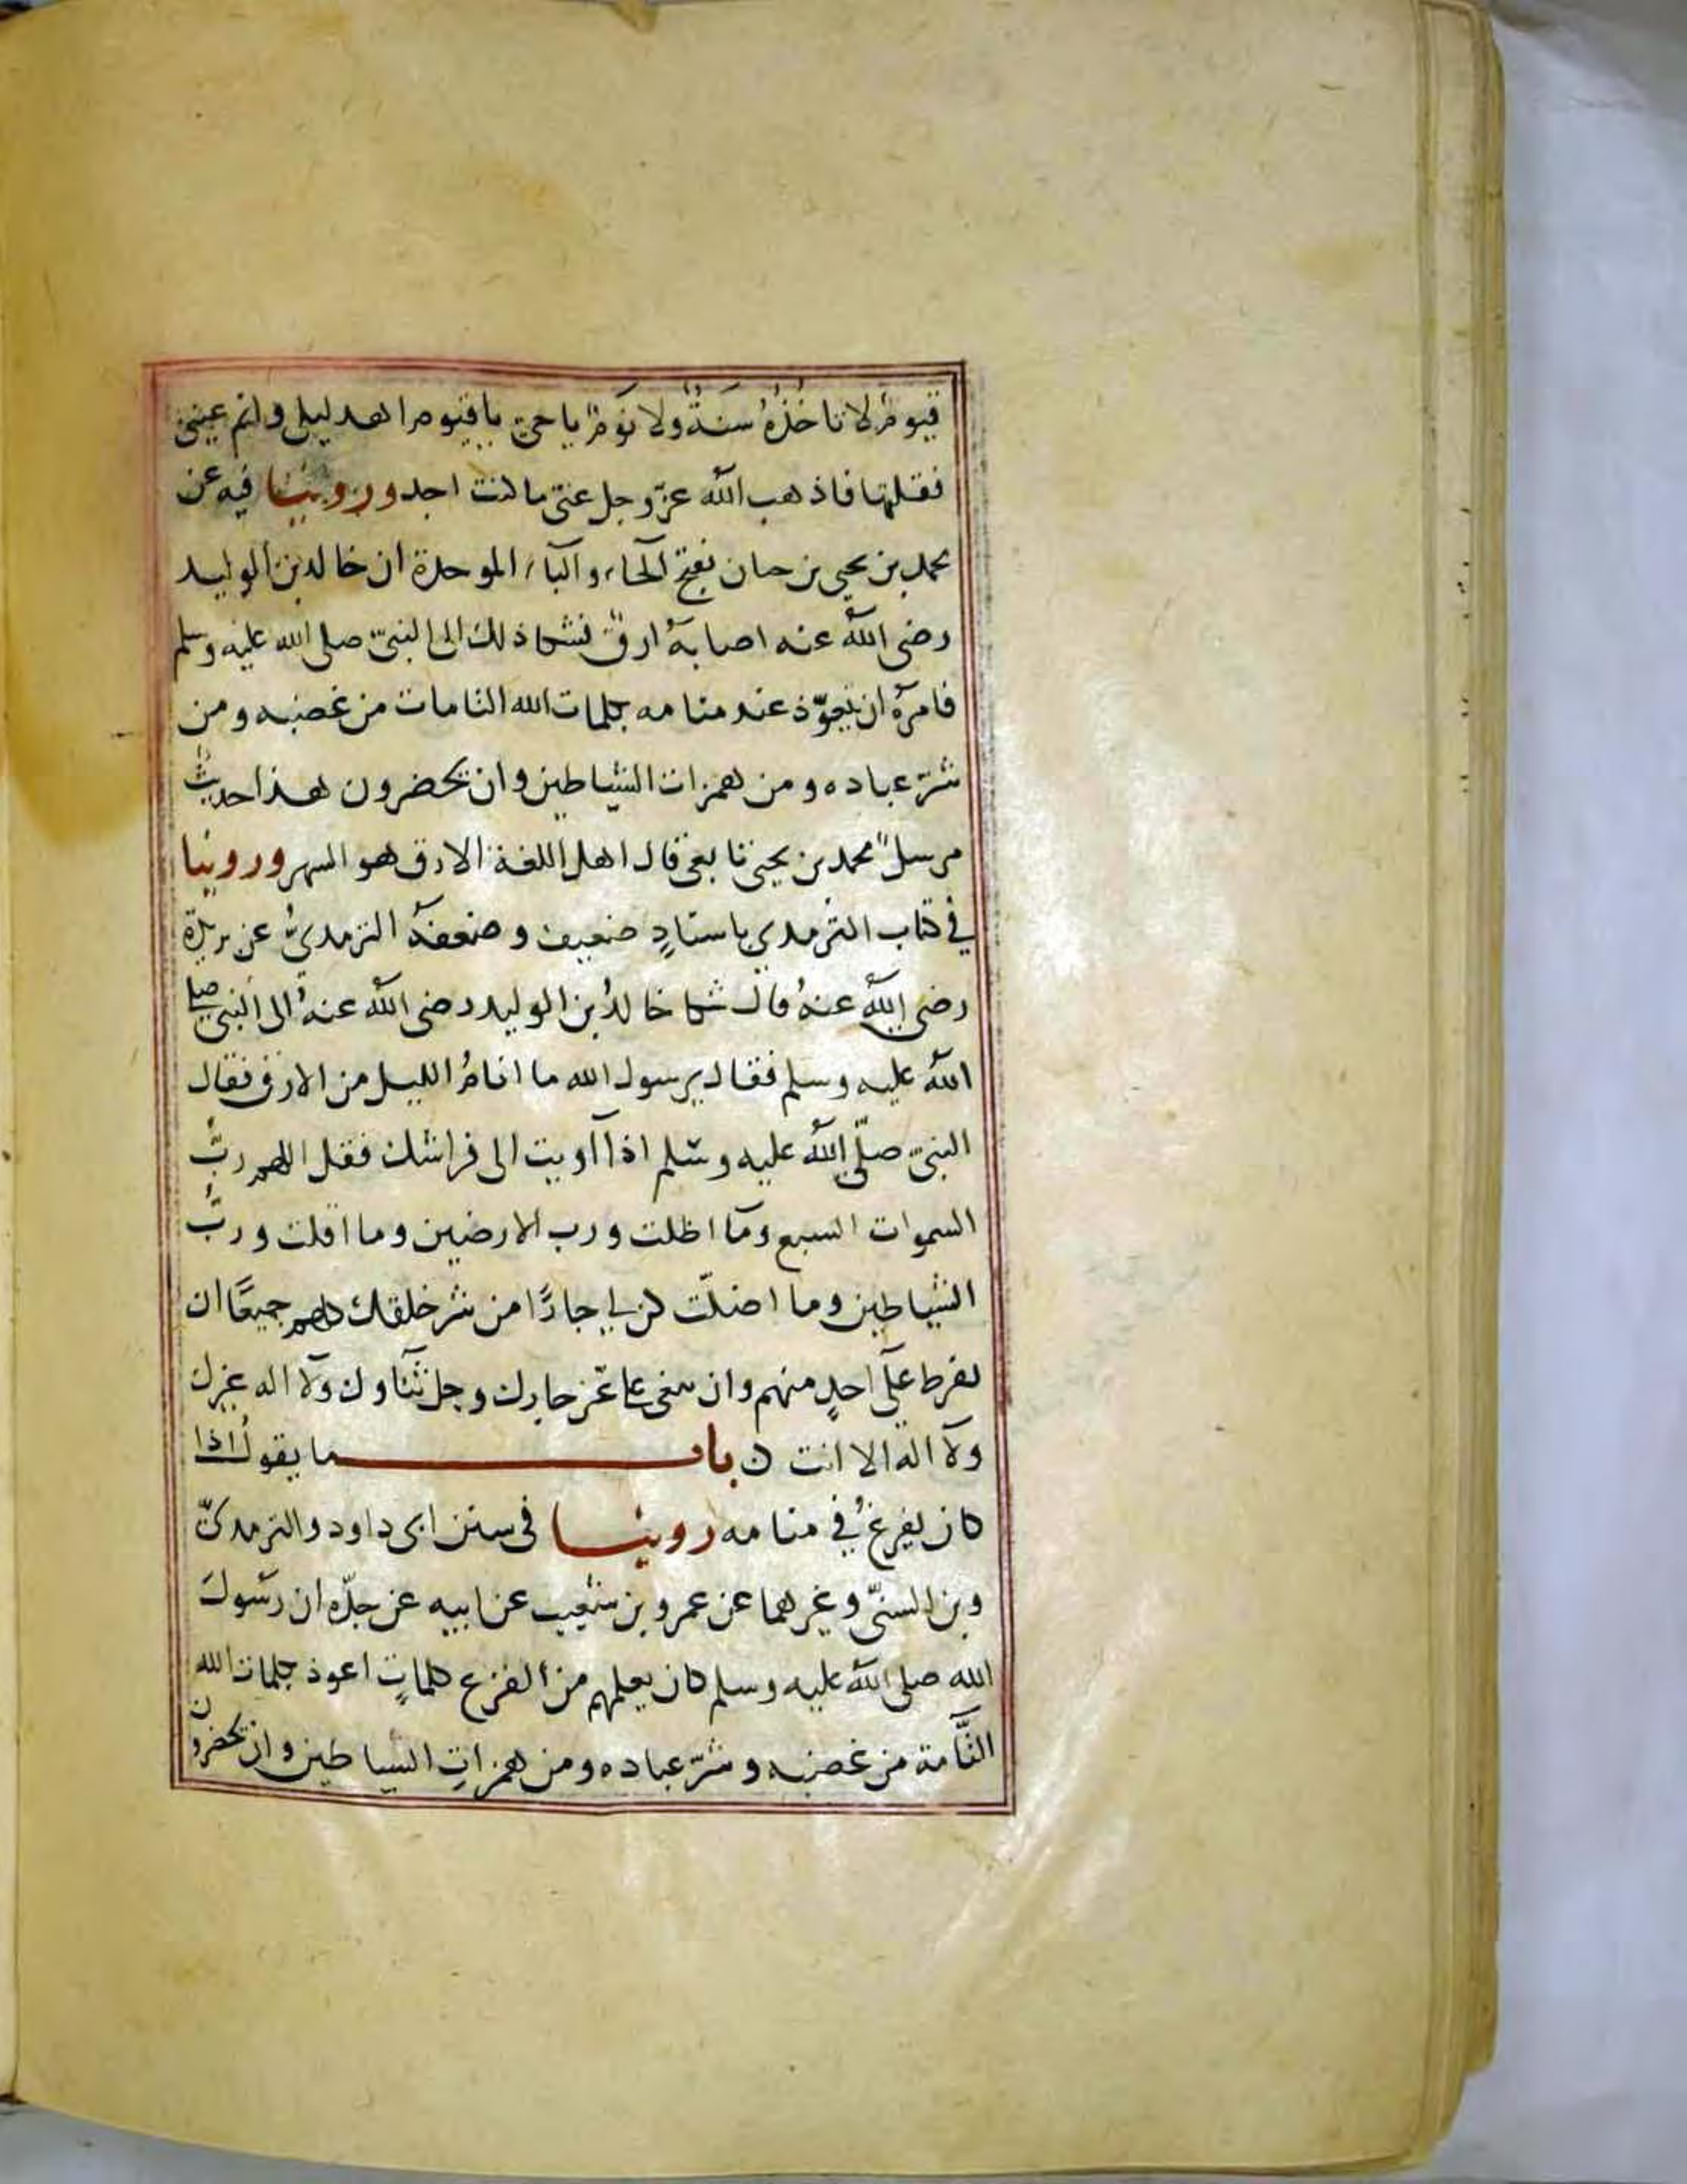 قيوم لا تاخذه سنة ولا نوم يا حي يا قيوم اهد ليلي وانم عيني
فقلتها فاذهب الله عز وجل عني ما كنت اجد وروينا فيه عن
محمد بن يحيى بن حبان بفتح الحاء والباء الموحدة ان خالد بن الوليد
رضى الله عنه اصابه ارق فشكا ذلك الى النبي صلى الله عليه وسلم
فامره ان يتعوذ عند منامه بكلمات الله التامات من غضبه ومن
شر عباده ومن همزات الشياطين وان يحضرون هذا حديث
مرسل محمد بن يحيى تابعي قال اهل اللغة الارق هو السهر وروينا
في كتاب الترمدي باسناد ضعيف وضعفه الترمدي عن بريدة
رضى الله عنه قال شكا خالد بن الوليد رضى الله عنه الى النبي صلى
الله عليه وسلم فقال يرسول الله ما انام الليل من الارق فقال
النبي صلى الله عليه وسلم اذا آويت الى فراشك فقل اللهم رب
السموات السبع وما اظلت ورب الارضين وما اقلت ورب
الشياطين وما اضلت كن لي جارا من شر خلقك كلهم جميعا ان
يفرط علي احد منهم وان يبغى علي عز جارك وجل ثناوك ولا اله غيرك
ولا اله الا انت ن باب ما يقول اذا
كان يفزع في منامه روينا في سنن ابى داود والترمدي
وبن السني وغيرهما عن عمرو بن شعيب عن ابيه عن جده ان رسول
الله صلى الله عليه وسلم كان يعلمهم من الفزع كلمات اعوذ بكلمات الله
التامة من غضبه وشر عباده ومن همزات الشياطين وان يحضرون